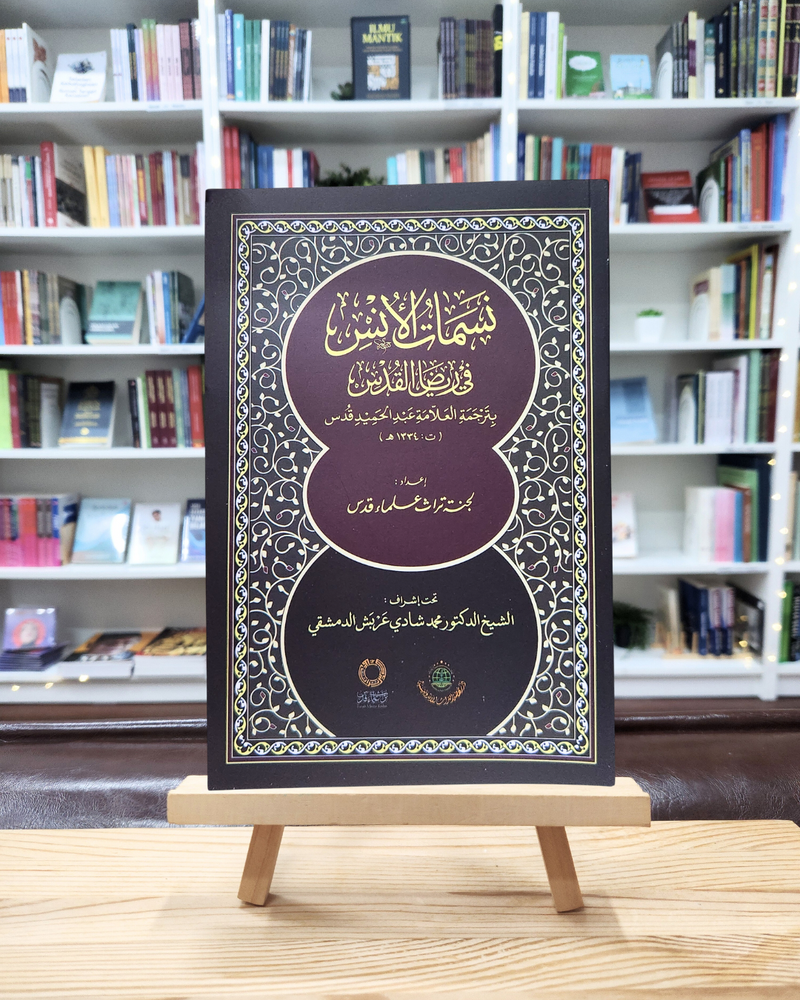 ILMU
MANTIK
نَسَمَاتُ الأُنْسِ
فِي رِيَاضِ القُدْسِ
بِتَرْجَمَةِ العَلَّامَةِ عَبْدِ الحَمِيْدِ قُدْس
(ت: ١٣٣٤ هـ)
إعداد:
لجنة تراث علماء قدس
تحت إشراف:
الشيخ الدكتور محمد شادي عَرْبَش الدمشقي